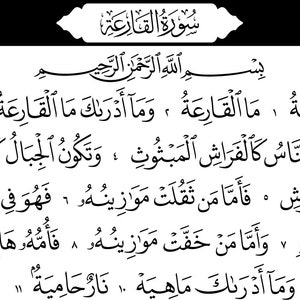 سُورَةُ القَارِعَةِ
بِسْمِ ٱللَّهِ ٱلرَّحْمَٰنِ ٱلرَّحِيمِ
ةُ ١ مَا ٱلْقَارِعَةُ ٢ وَمَآ أَدْرَىٰكَ مَا ٱلْقَارِعَةُ
نَّاسُ كَٱلْفَرَاشِ ٱلْمَبْثُوثِ ٤ وَتَكُونُ ٱلْجِبَالُ كَ
شِ ٥ فَأَمَّا مَن ثَقُلَتْ مَوَٰزِينُهُۥ ٦ فَهُوَ فِى
٧ وَأَمَّا مَنْ خَفَّتْ مَوَٰزِينُهُۥ ٨ فَأُمُّهُۥ هَا
وَمَآ أَدْرَىٰكَ مَا هِيَهْ ١٠ نَارٌ حَامِيَةٌۢ ١١